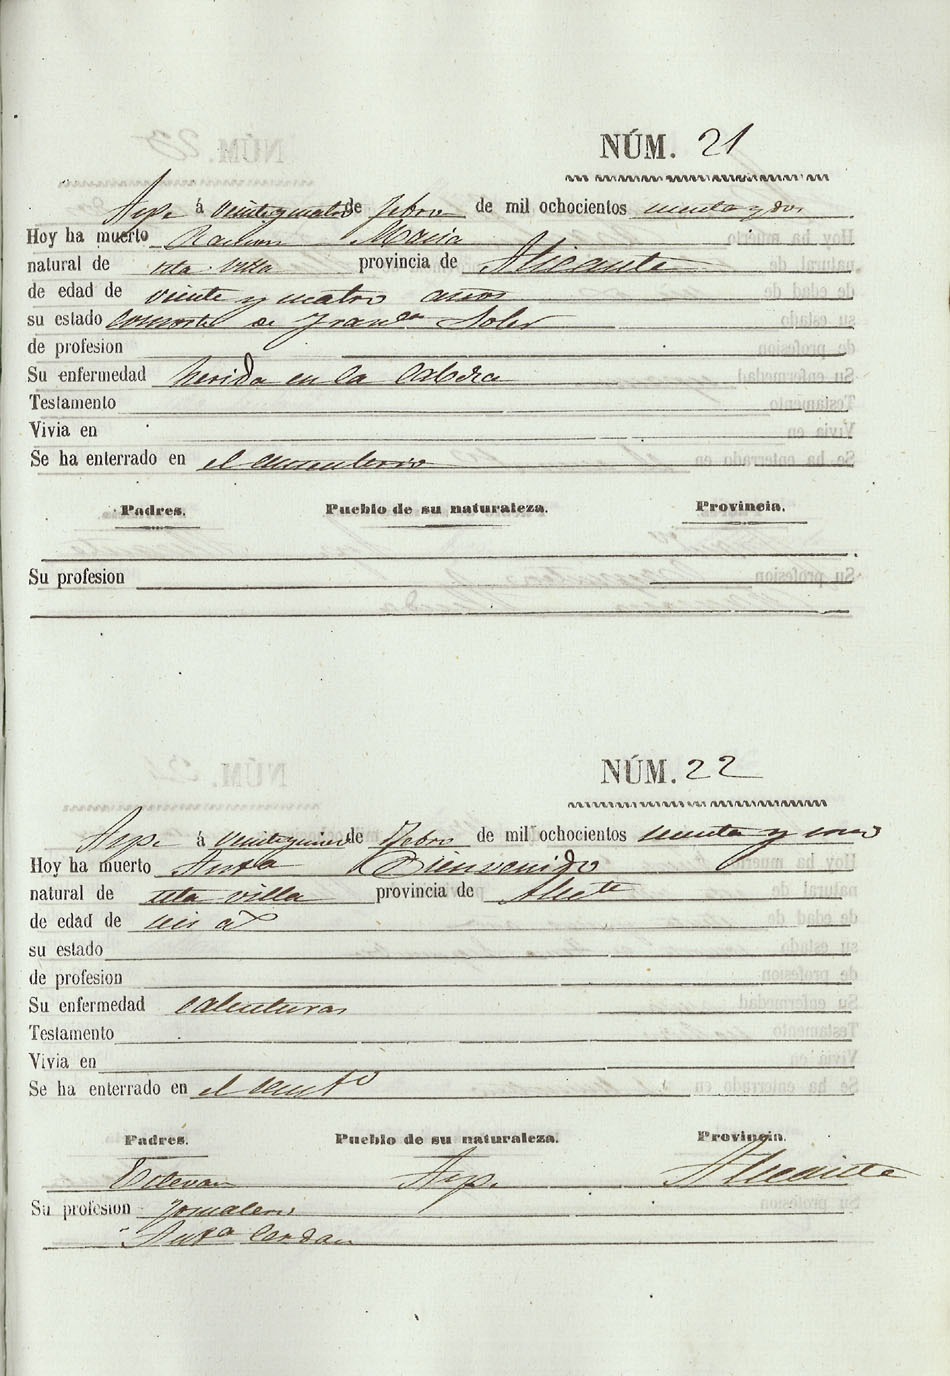 NÚM. 21
Aspe á veinte y cuatro de Febro de mil ochocientos
Hoy ha muerto Ramon Maria
natural de esta villa provincia de Alicante
de edad de veinte y cuatro años
su estado consorte de Fran.ca Soler
de profesion
Su enfermedad herida en la cabeza
Testamento
Vivia en
Se ha enterrado en el cementerio
Padres. Pueblo de su naturaleza. Provincia.
Su profesion
NÚM. 22
Aspe á de Febro de mil ochocientos
Hoy ha muerto Bienvenido
natural de esta villa provincia de Alic.te
de edad de seis
su estado
de profesion
Su enfermedad calenturas
Testamento
Vivia en
Se ha enterrado en el cemt.o
Padres. Pueblo de su naturaleza. Provincia.
Estevan Aspe Alicante
Su profesion Jornalero